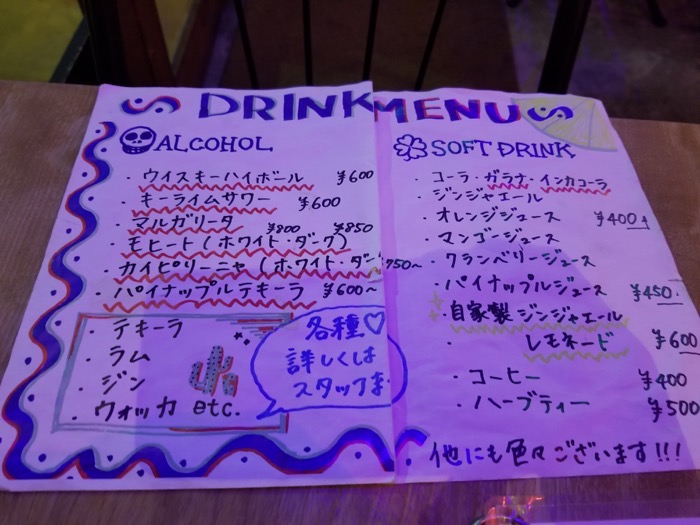 DRINK MENU
ALCOHOL
・ウイスキーハイボール ¥600
・キーライムサワー ¥600
・マルガリータ ¥800 ¥850
・モヒート(ホワイト・ダーク)
・カイピリーニャ(ホワイト・ダー 750~
・パイナップルテキーラ ¥600~
・テキーラ
・ラム
・ジン
・ウォッカ etc.
各種♡
詳しくは
スタッフま
SOFT DRINK
・コーラ・ガラナ・インカコーラ
・ジンジャエール
・オレンジジュース ¥400
・マンゴージュース
・クランベリージュース
・パイナップルジュース ¥450.
・自家製 ジンジャエール
・レモネード ¥600
・コーヒー ¥400
・ハーブティー ¥500
他にも色々ございます!!!